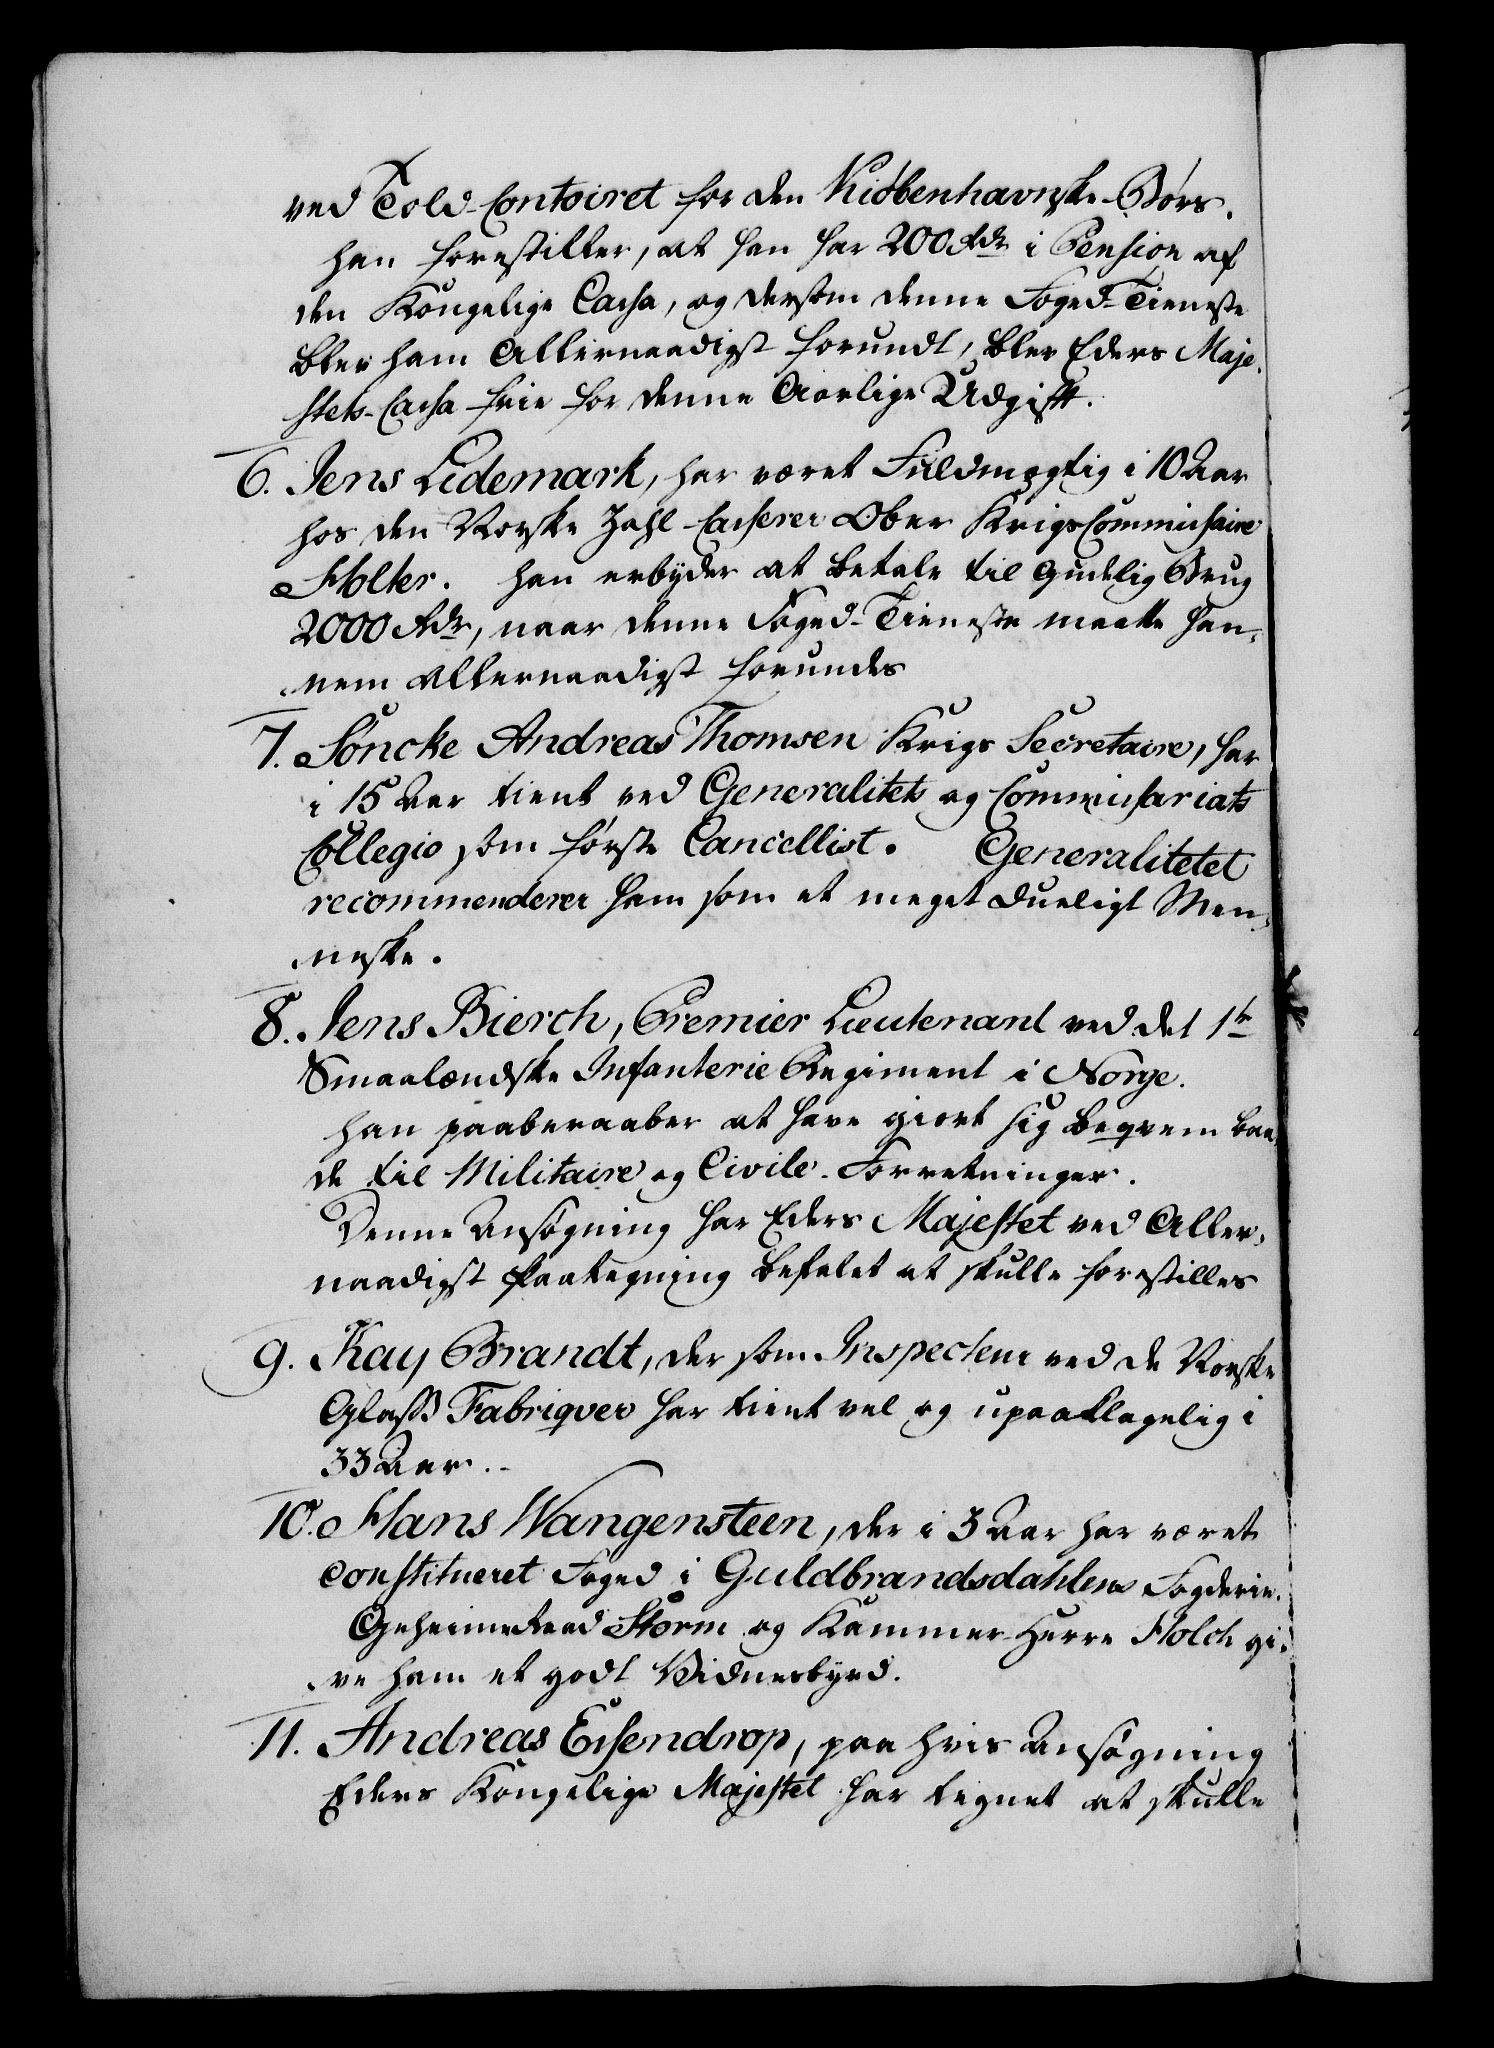 ved Told-Contoiret for den Kiöbenhavnske-Börs.
han forestiller, at han har 200 Rdr i Pension af
den Kongelige Cassa, og dersom denne Foged-Tieneste
blev ham Allernaadigst forundt, blev Eders Maje-
stets-Cassa frie for denne Aarlige Udgift.
6. Jens Lidemark, har været Fuldmægtig i 10 Aar
hos den Norske Zahl-Casserer Ober KrigsCommissaire
Holter. han erbyder at betale til Gudelig Brug
2000 Rdr, naar denne Foged-Tieneste maatte han-
nem Allernaadigst forundes
7. Söncke Andreas Thomsen Krigs Secretaire, har
i 15 Aar tient ved Generalitets og Commissariats
Collegio som förste Cancellist. Generalitetet
recommenderer ham som et meget dueligt Men-
neske.
8. Jens Bierch, Premier Lieutenant ved det 1te
Smaalændske Infanterie Regiment i Norge.
han paaberaaber at have giort sig beqvem baa-
de til Militaire og Civile-Forretninger.
Denne Ansögning har Eders Majestet ved Aller-
naadigst Paategning befalet at skulle forestilles
9. Kay Brandt, der som Inspecteur ved de Norske
Glass Fabriqver har tient vel og upaaklagelig i
33 Aar.-
10. Hans Wangensteen, der i 3 Aar har været
constitueret Foged i Guldbrandsdahlens Fogderie.
Geheimeraad Storm og Kammer-Herre Holck gi-
ve ham et godt Vidnesbyrd.
11. Andreas Eisendrop, paa hvis Ansögning
Eders Kongelige Majestet har tegnet at skulle